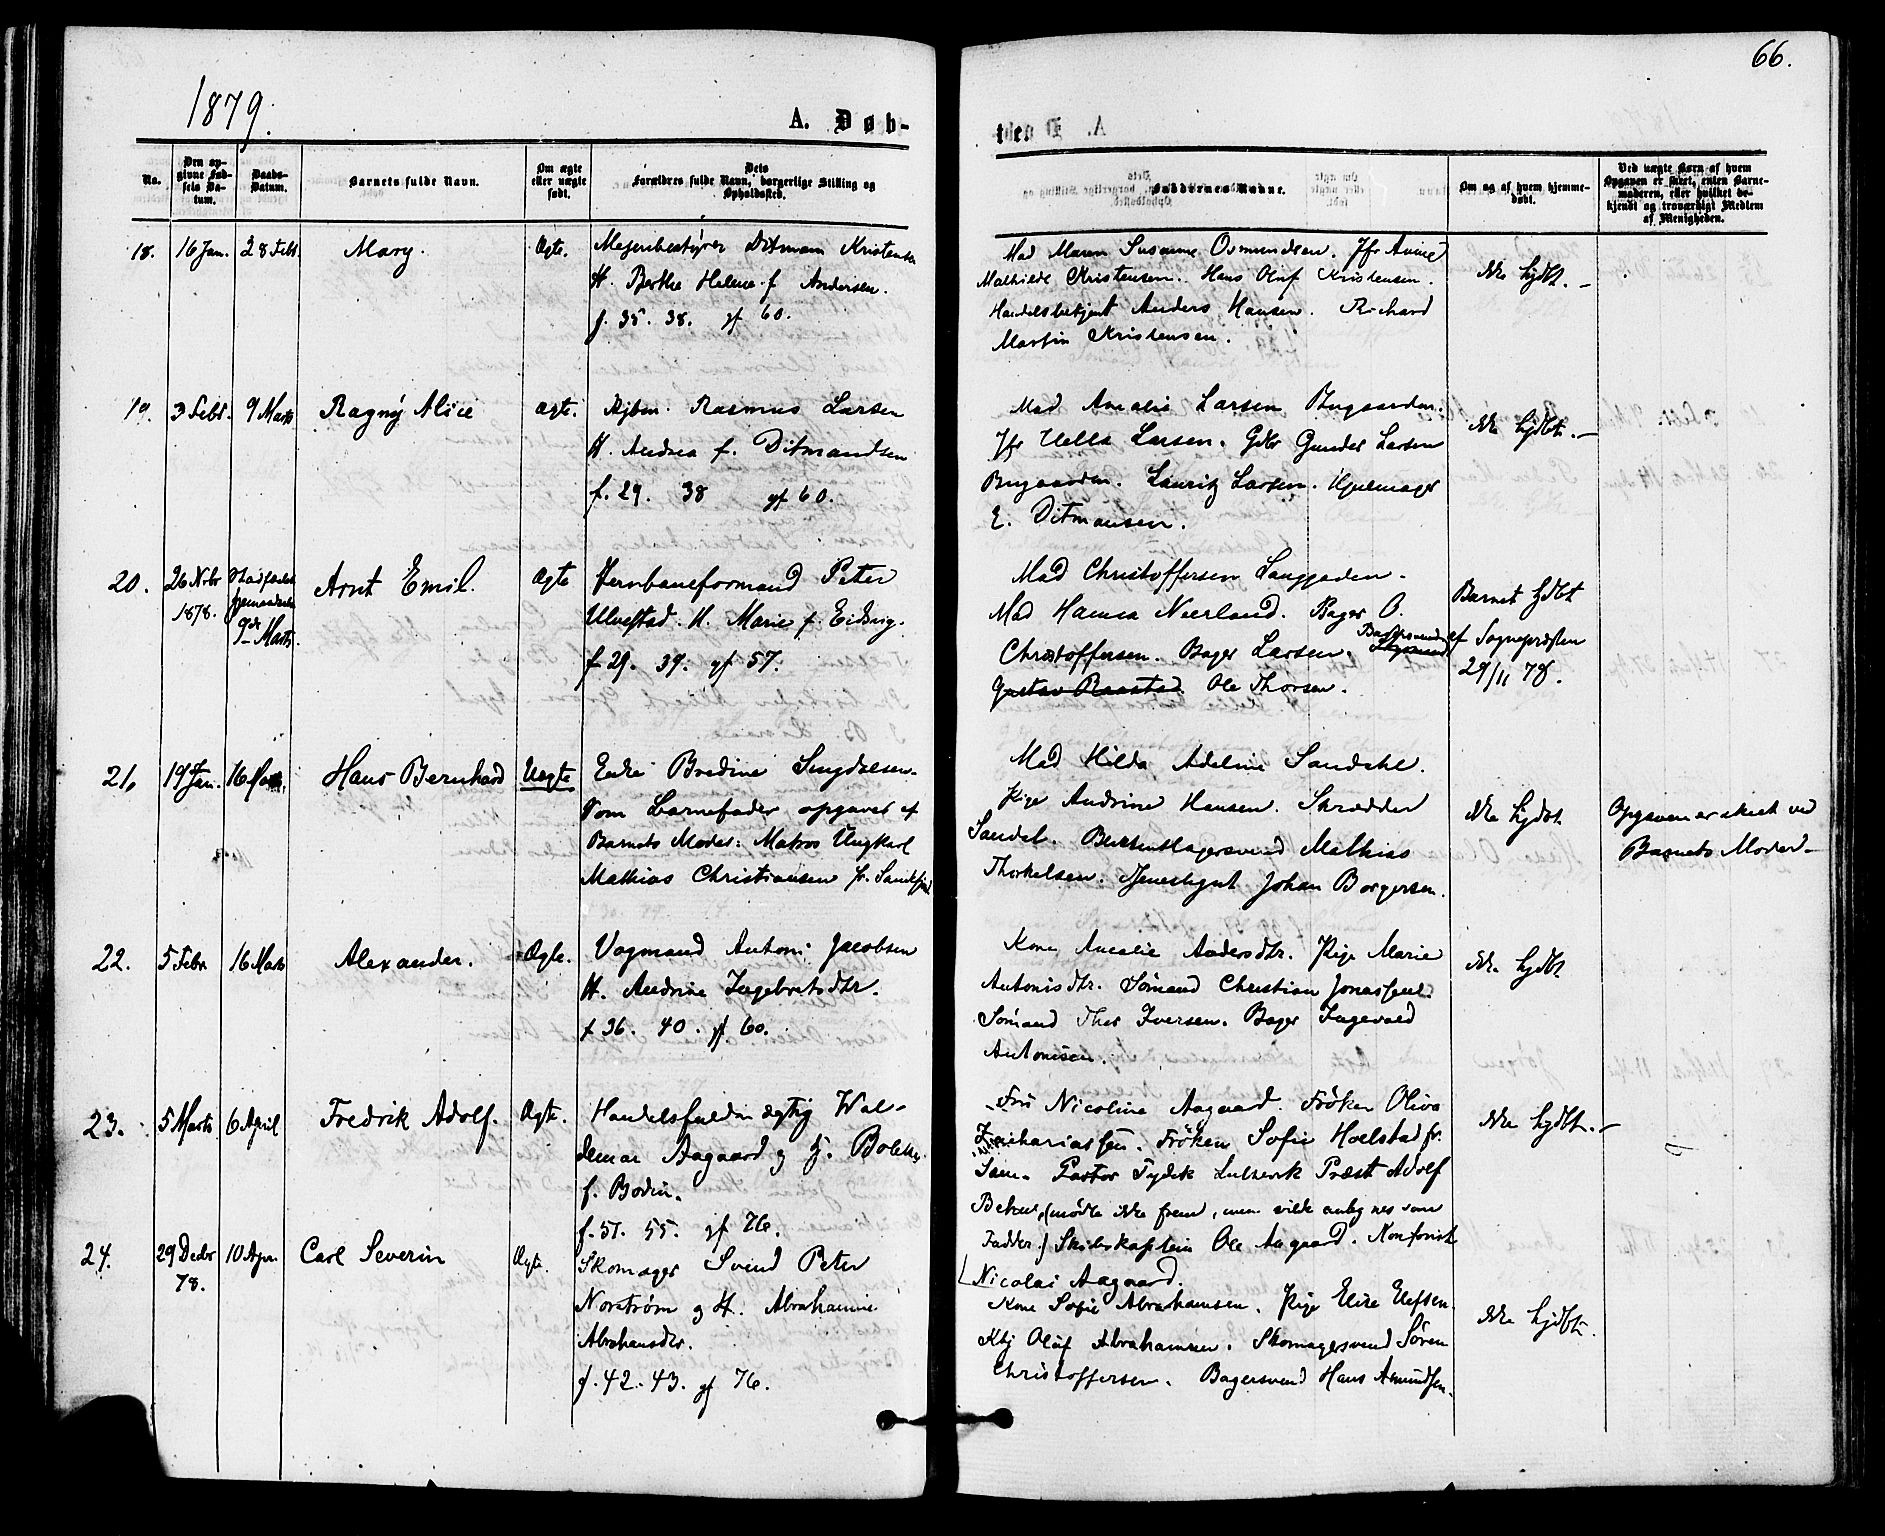 66.
1879.
A. Døb-
te
No.
Den op-
givne Fød-
sels Da-
tum.
Daabs-
Datum.
Barnets fulde Navn.
Om ægte
eller uægte
født.
Dets
Forældres fulde Navn, borgerlige Stilling og
Opholdssted.
Faddernes Navne.
Om og af hvem hjemme-
døbt.
Ved uægte Børn af hvem
Opgaven er skeet, enten Barne-
moderen, eller hvilket be-
kjendt og troværdigt Medlem
af Menigheden.
18. 16 Jan. 28 Febr. Mary. Ægte.
Meieribestyrer Ditmann Kristensen
H. Berthe Helene f. Andersen.
f. 35. 38. gf 60.
Mad Maren Susanne Osmundsen. Jfr Anine
Mathilde Kristensen. Hans Oluf Kristensen.
Handelsbetjent Anders Hansen. Richard
Martin Kristensen.
ikke hjdbt. –
19. 3 Febr. 9 Marts Ragny Alice Ægte.
Kjbm. Rasmus Larsen
H. Andrea f. Ditmandsen
f. 29. 38 gf 60.
Mad Amalie Larsen Bugaarden.
Jfr Helle Larsen. Gdbr Gunder Larsen
Bugaarden. Lauritz Larsen. Hjulmager
E. Ditmansen.
ikke hjdbt. –
20. 26 Nvbr
1878.
Stadfæstet
9de Marts.
Arnt Emil. Ægte
Jernbaneformand Peter
Ulvestad. H. Marie f. Eidsvig.
f 29. 39. gf 57.
Mad Christoffersen Langgaden.
Mad Hanna Neerland. Bager O.
Christoffersen. Bager Larsen. Bagersvend
Gustav Raastad. Ole Thorsen.
Barnet hjdbt
af Sognepræsten
29/11 78.
21, 19 Jan. 16 Marts. Hans Bernhard Uægte
Enke Bredine Smydalsen.
Som Barnefader opgaves af
Barnets Moder: Matros Ungkarl
Mathias Christiansen fr. Sandefjord
Mad Hilda Adeline Sandahl.
Pige Andrine Hansen. Skrædder
Sandal. Buntmagersvend Mathias
Thorkelsen. Tjenestegut Johan Borgersen.
ikke hjdbt
Opgaven er skeet ved
Barnets Moder –
22. 5 Febr. 16 Marts Alexander. Ægte.
Vognmand Anton Jacobsen
H. Andrine Ingebretsdtr.
f 36. 40. gf 60.
Kone Amalie Andersdtr. Pige Marie
Antonisdtr. Sømand Christian Jonassen.
Sømand Thor Iversen. Bager Ingevald
Antonisen.
ikke hjdbt
23. 5 Marts 6 April Fredrik Adolf. Ægte.
Handelsfuldmægtig Wal-
demar Aagaard og H. Bolette
f. Bodin.
f. 51. 55. gf 76.
Fru Nicoline Aagaard. Frøken Oliva
Zachariassen. Frøken Sofie Hoelstad fr.
Pastor Fydik Luthersk Præst Adolf
(mødte ikke frem, men vilde anføres som
Fadder.) Skibskaptein Ole Aagaard. Kontorist
Nicolai Aagaard.
ikke hjdbt. –
24. 29 Decbr
78.
10 Apr. Carl Severin Ægte.
Skomager Svend Peter
Norstrøm og H. Abrahamine
Abrahamsdtr.
f. 42. 43. gf 76.
Kone Sofie Abrahamsen. Pige Elise Ulfsen.
Kbj Oluf Abrahamsen. Skomagersvend Søren
Christoffersen. Bagersvend Hans Amundsen.
ikke hjdbt.